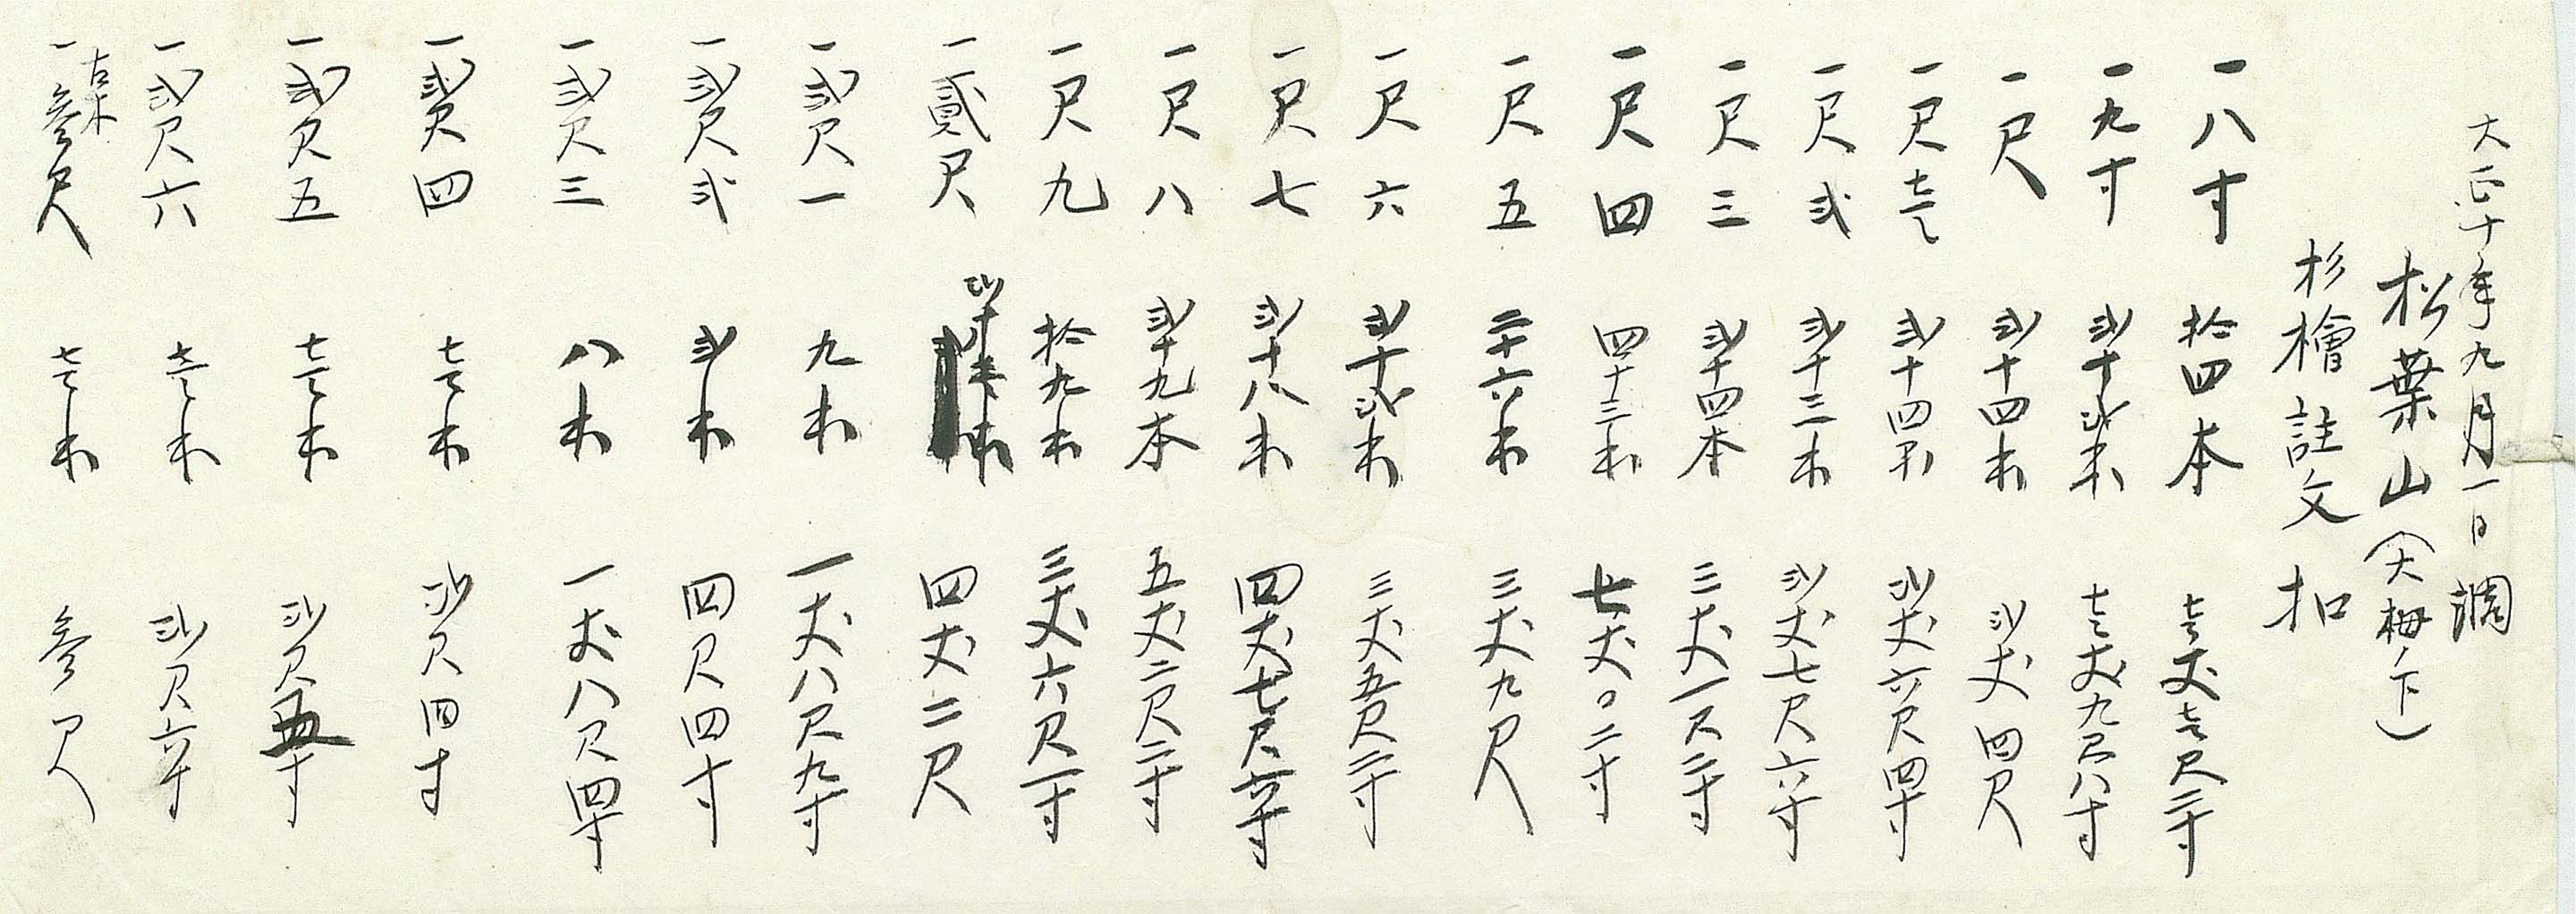 大正十年九月一日調
松葉山(大栂ノ下)
杉檜註文扣
一八寸 拾四本 壱丈壱尺二寸
一九寸 弐十弐本 壱丈九尺八寸
一尺 弐十四本 弐丈四尺
一尺壱 弐十四本 弐丈六尺四寸
一尺弐 弐十三本 弐丈七尺六寸
一尺三 弐十四本 三丈一尺二寸
一尺四 四十三本 七丈〇二寸
一尺五 二十六本 三丈九尺
一尺六 弐十弐本 三丈五尺二寸
一尺七 弐十八本 四丈七尺六寸
一尺八 弐十九本 五丈二尺二寸
一尺九 拾九本 三丈六尺一寸
一貳尺 弐十壱本 四丈二尺
一弐尺一 九本 一丈八尺九寸
一弐尺弐 弐本 四尺四寸
一弐尺三 八本 一丈八尺四寸
一弐尺四 壱本 弐尺四寸
一弐尺五 壱本 弐尺五寸
一弐尺六 壱本 弐尺六寸
古木
一参尺 壱本 参尺